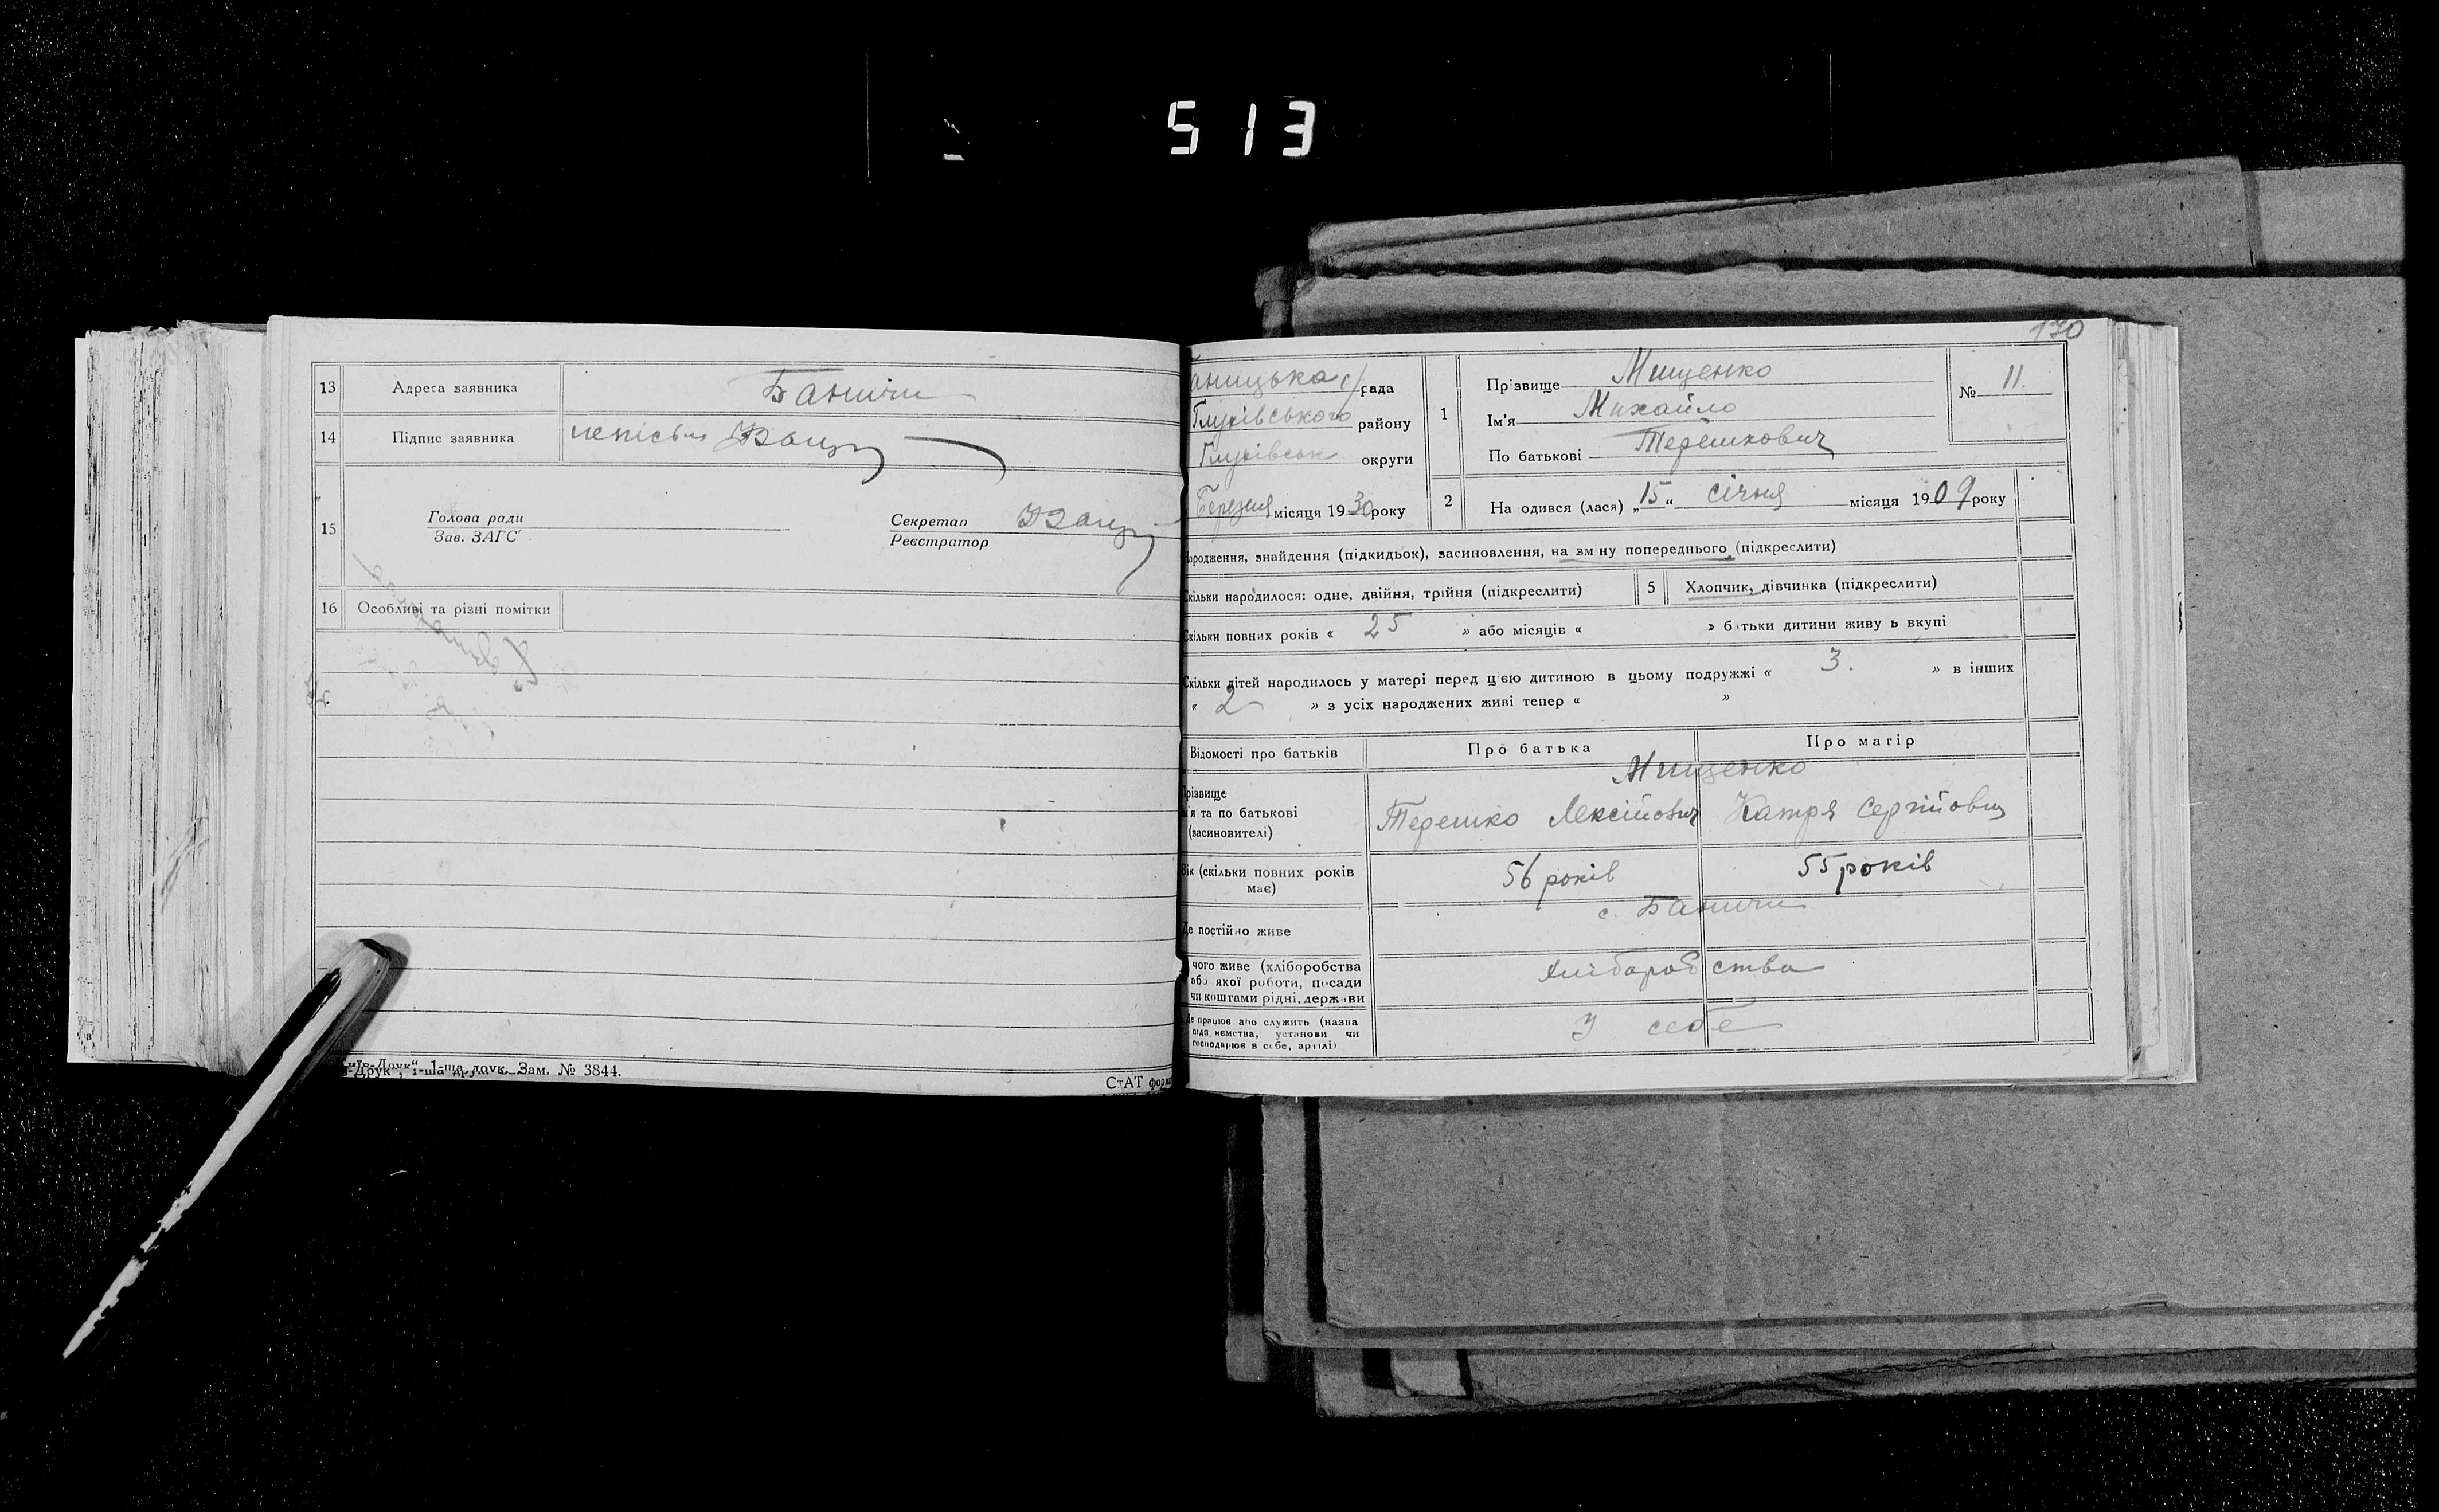 513
13 Адреса заявника Баничи
14 Підпис заявника
15 Голова ради
Зав. ЗАГС
Секретар
Реєстратор
16 Особливі та різні помітки
1-ша друк. Зам. № 3844.
СтАТ форм
170
аницька с/рада
Глухівського району
Глухівськ округи
Березня місяця 1930 року
1 Прізвище Мищенко
Ім'я Михайло
По батькові Терешкович
№ 11.
2 На одився (лася) „15“ січня місяця 1909 року
ародження, знайдення (підкидьок), засиновлення, на зм ну попереднього (підкреслити)
кільки народилося: одне, двійня, трійня (підкреслити)
5 Хлопчик, дівчинка (підкреслити)
кільки повних років « 25 » або місяців « » б тьки дитини живу ь вкупі
Скільки дітей народилось у матері перед цією дитиною в цьому подружжі « 3. » в інших
« 2 » з усіх народжених живі тепер « »
Відомості про батьків Про батька Про матір
Мищенко
різвище
м'я та по батькові
(засиновителі)
Терешко Лексійович Катря Сергійовн
Вік (скільки повних років має) 56 років 55 років
Де постійно живе с. Баничи
чого живе (хліборобства
або якої роботи, посади
чи коштами рідні, держави
хліборобства
Де працює або служить (назва
підп иємства, установи чи
господарює в себе, артілі)
У себе